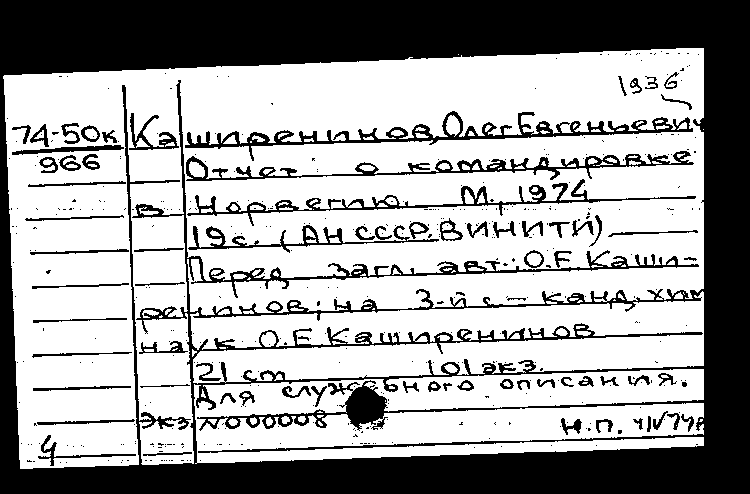 1936
74-50к Каширенинов, Олег Евгеньевич
966 Отчет о командировке
в Норвегию. М., 1974
19 с. (АН СССР. ВИНИТИ)
Перед загл. авт.: О.Е. Каши-
ренинов; на 3-й с. - канд. хим
наук О.Е. Каширенинов
21 cm 101 экз.
Для служебного описания.
экз. N000008
4 Н.П.